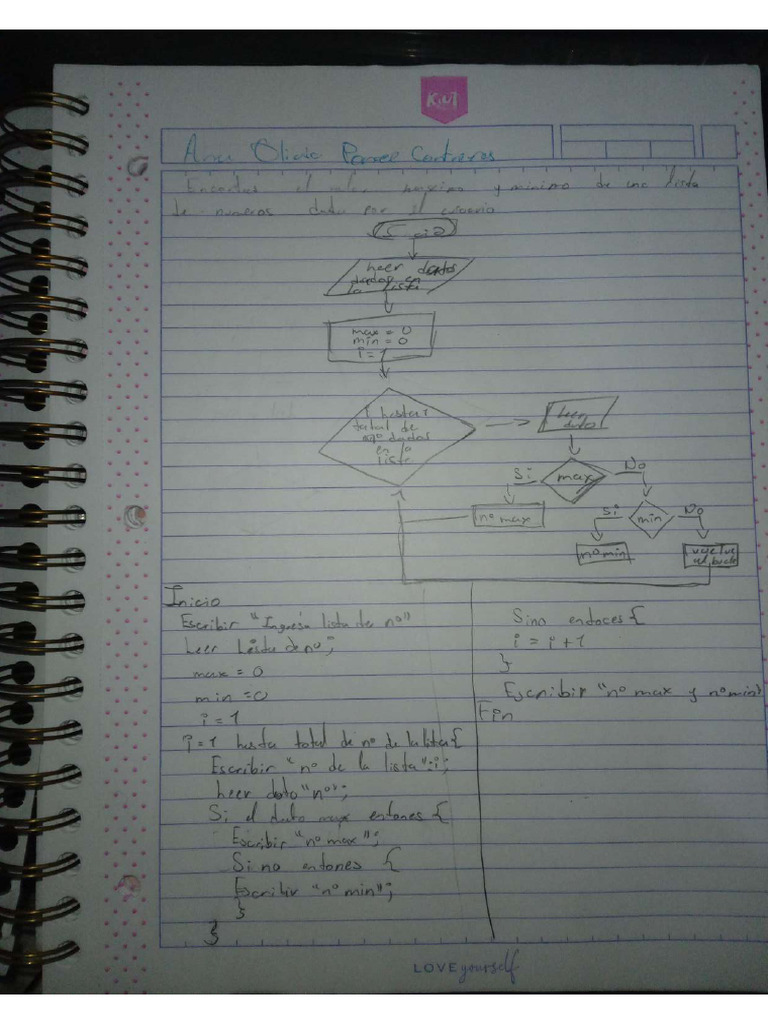 KiUT
Ana Olivia Ponce Contreras
Encontrar el valor maximo y minimo de una lista
de numeros dada por el usuario
Inicio
Leer datos
dados en
la lista
max = 0
min = 0
i = 1
1 hasta
total de
nº dados
en la
lista
Leer
dato
max
Si
No
nº max
min
Si
No
nº min
vuelve
al bucle
Inicio
Escribir "Ingresa lista de nº"
Leer Lista de nº;
max = 0
min = 0
i = 1
i = 1 hasta total de nº de la lista {
Escribir "nº de la lista": i;
Leer dato "nº";
Si el dato max entonces {
Escribir "nº max";
Si no entones {
Escribir "nº min";
}
}
Sino entoces {
i = i + 1
}
Escribir "nº max y nº min"
Fin
LOVE yourself